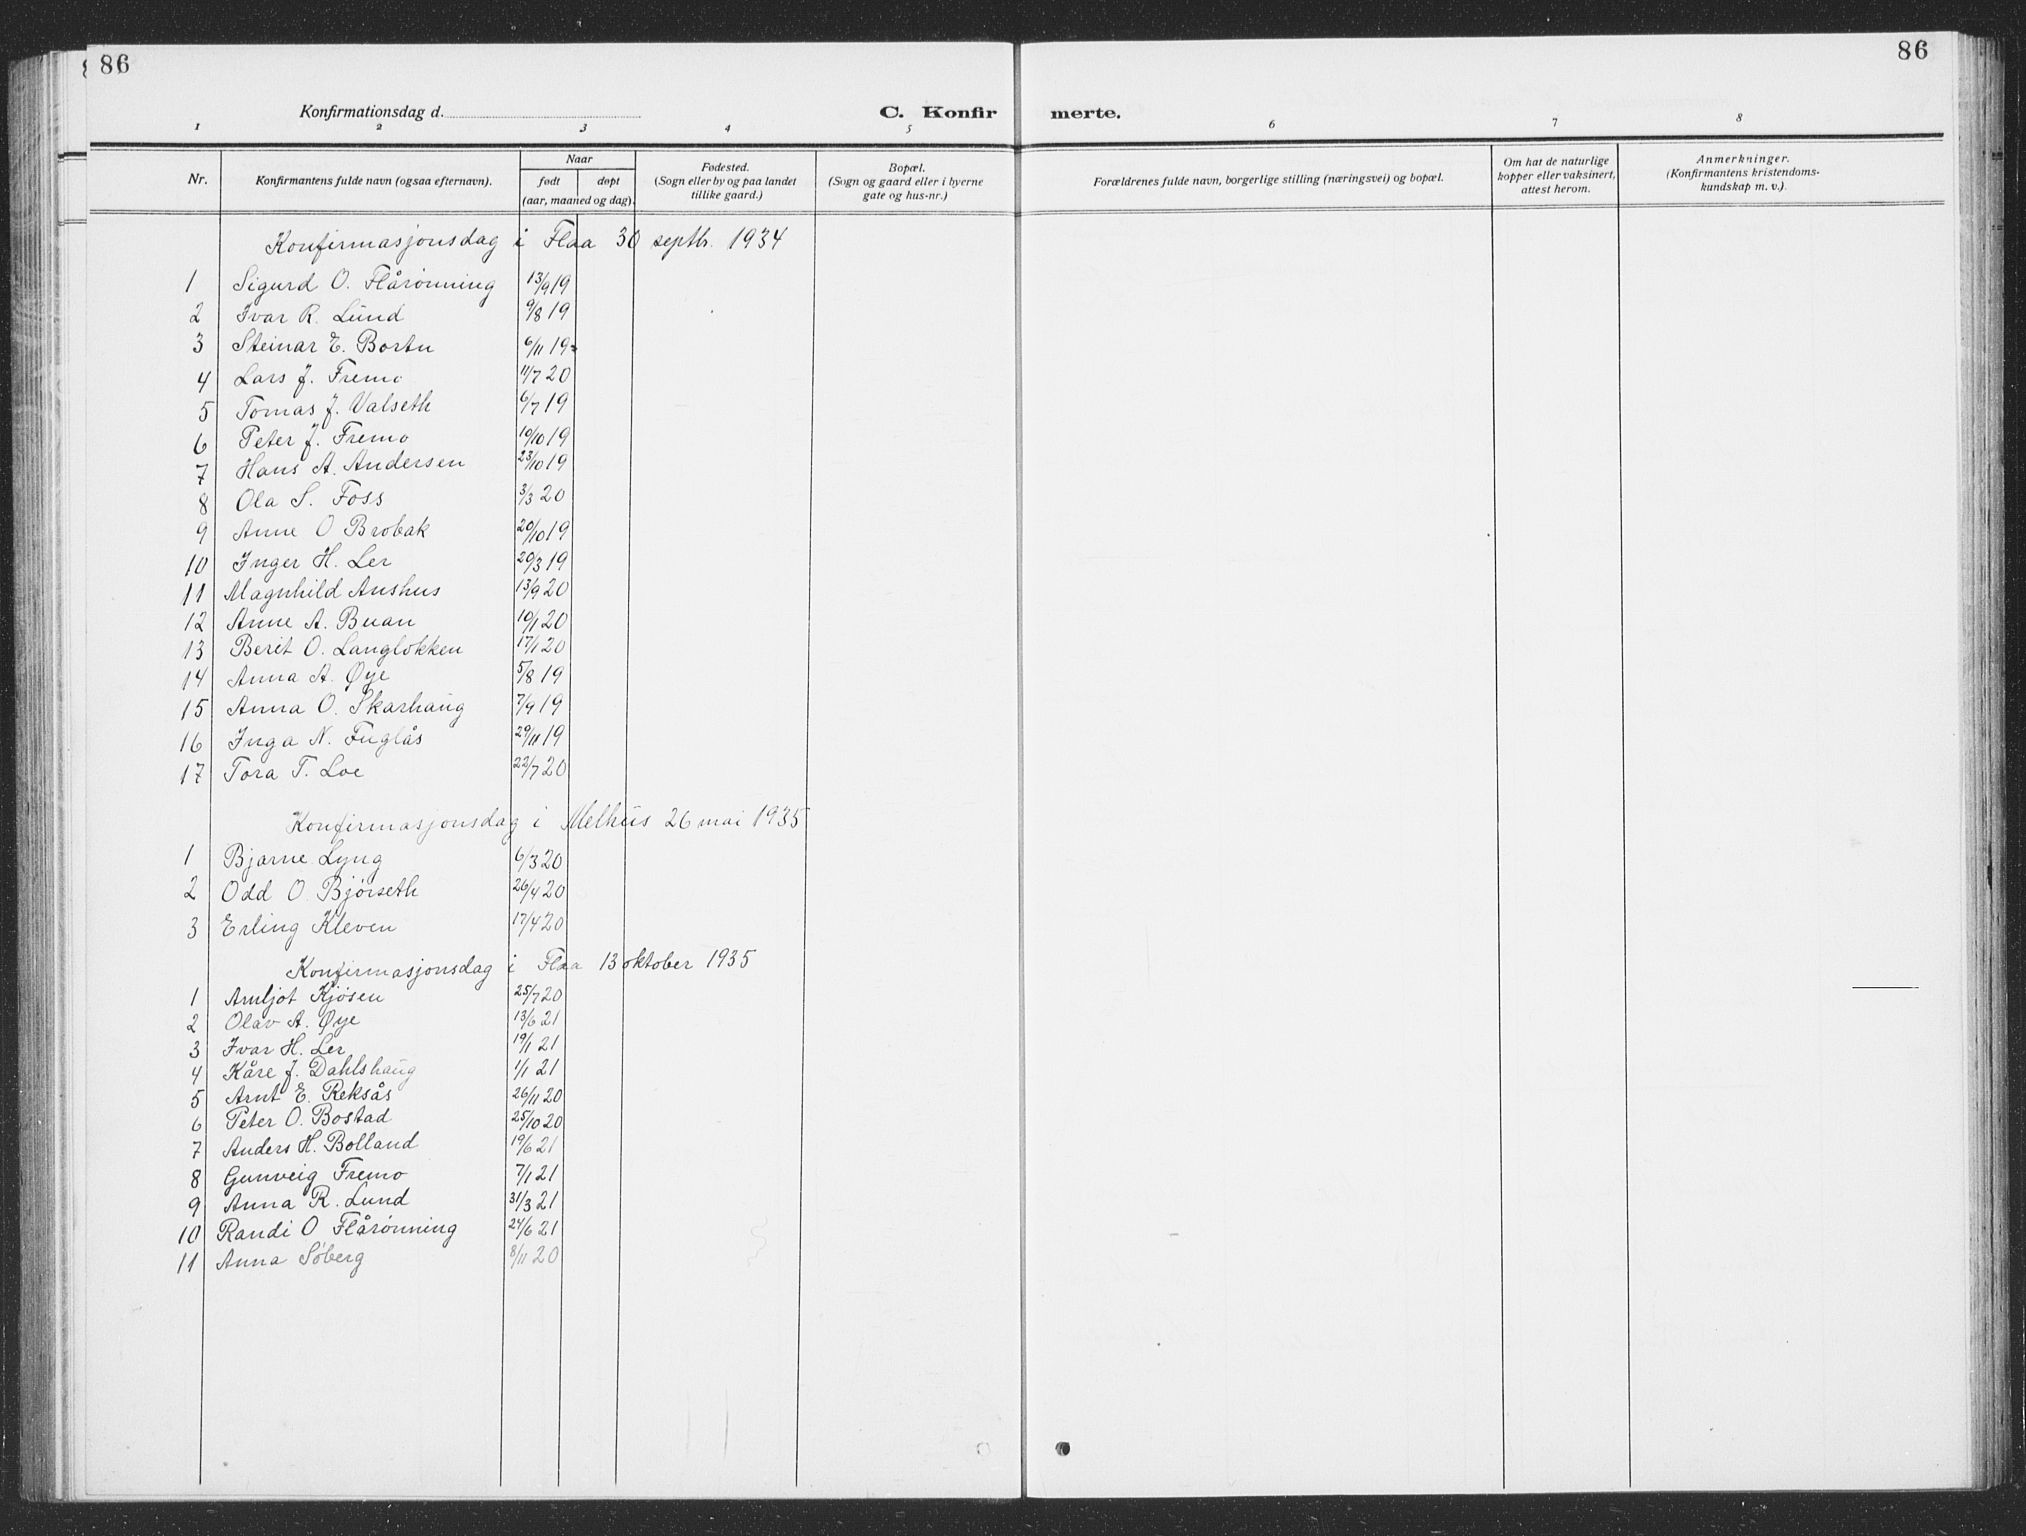 86
86
Konfirmationsdag d.
C. Konfir
merte.
1 2 3 4 5 6 7 8
Nr.
Konfirmantens fulde navn (ogsaa efternavn).
Naar
født døpt
(aar, maaned og dag).
Fødested.
(Sogn eller by og paa landet
tillike gaard.)
Bopæl.
(Sogn og gaard eller i byerne
gate og hus-nr.)
Forældrenes fulde navn, borgerlige stilling (næringsvei) og bopæl.
Om hat de naturlige
kopper eller vaksinert,
attest herom.
Anmerkninger.
(Konfirmantens kristendoms-
kundskap m. v.).
Konfirmasjonsdag i Flaa 30 septbr. 1934
1 Sigurd O. Flårønning 13/9 19
2 Ivar R. Lund 9/8 19
3 Steinar E. Bortn 6/11 19
4 Lars J. Fremo 11/7 20
5 Tomas J. Valseth 6/7 19
6 Peter J. Fremo 10/10 19
7 Hans A. Andersen 23/10 19
8 Ola S. Foss 3/3 20
9 Anne O Brobak 20/10 19
10 Inger H. Ler 20/3 19
11 Magnhild Aushus 13/9 20
12 Anne A. Buan 10/1 20
13 Berit O. Langløkken 17/1 20
14 Anna A. Øye 5/8 19
15 Anna O. Skarhaug 7/9 19
16 Inga N. Fuglås 29/11 19
17 Tora T. Loe 22/7 20
Konfirmasjonsdag i Melhus 26 mai 1935
1 Bjarne Lyng 6/3 20
2 Odd O. Bjørseth 26/4 20
3 Erling Kleven 17/4 20
Konfirmasjonsdag i Flaa 13 oktober 1935
1 Arnljot Kjøsen 25/7 20
2 Olav A. Øye 13/6 21
3 Ivar H. Ler 19/1 21
4 Kåre J. Dahlshaug 1/1 21
5 Arnt E. Reksås 26/11 20
6 Peter O. Bostad 25/10 20
7 Anders H. Bolland 19/6 21
8 Gunveig Fremo 7/1 21
9 Anna R. Lund 31/3 21
10 Randi O Flårønning 24/6 21
11 Anna Søberg 8/11 20